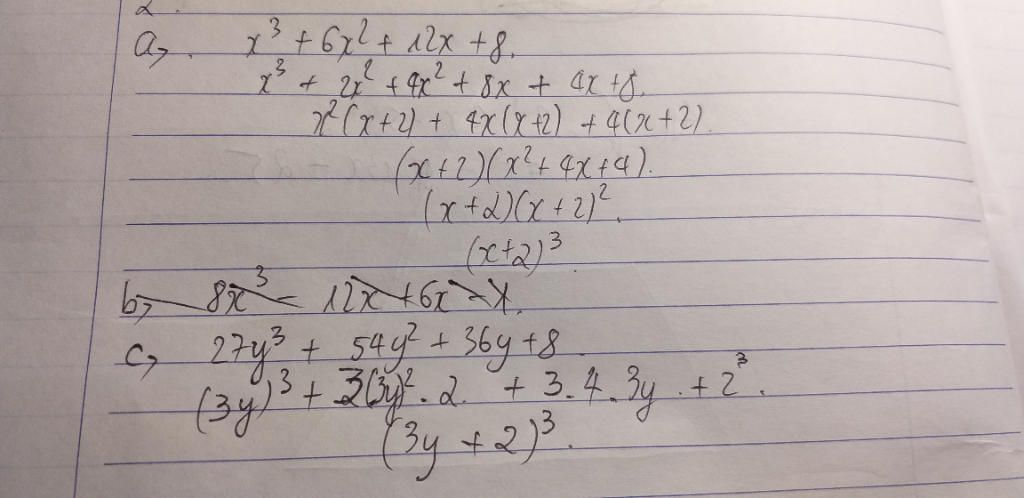 2.
a, x³ + 6x² + 12x + 8.
x³ + 2x² + 4x² + 8x + 4x + 8.
x²(x+2) + 4x(x+2) + 4(x+2).
(x+2)(x² + 4x + 4).
(x+2)(x+2)².
(x+2)³
b, 8x³ - 12x + 6x - 1.
c, 27y³ + 54y² + 36y + 8
(3y)³ + 3(3y)².2. + 3.4.3y. + 2³.
(3y + 2)³.